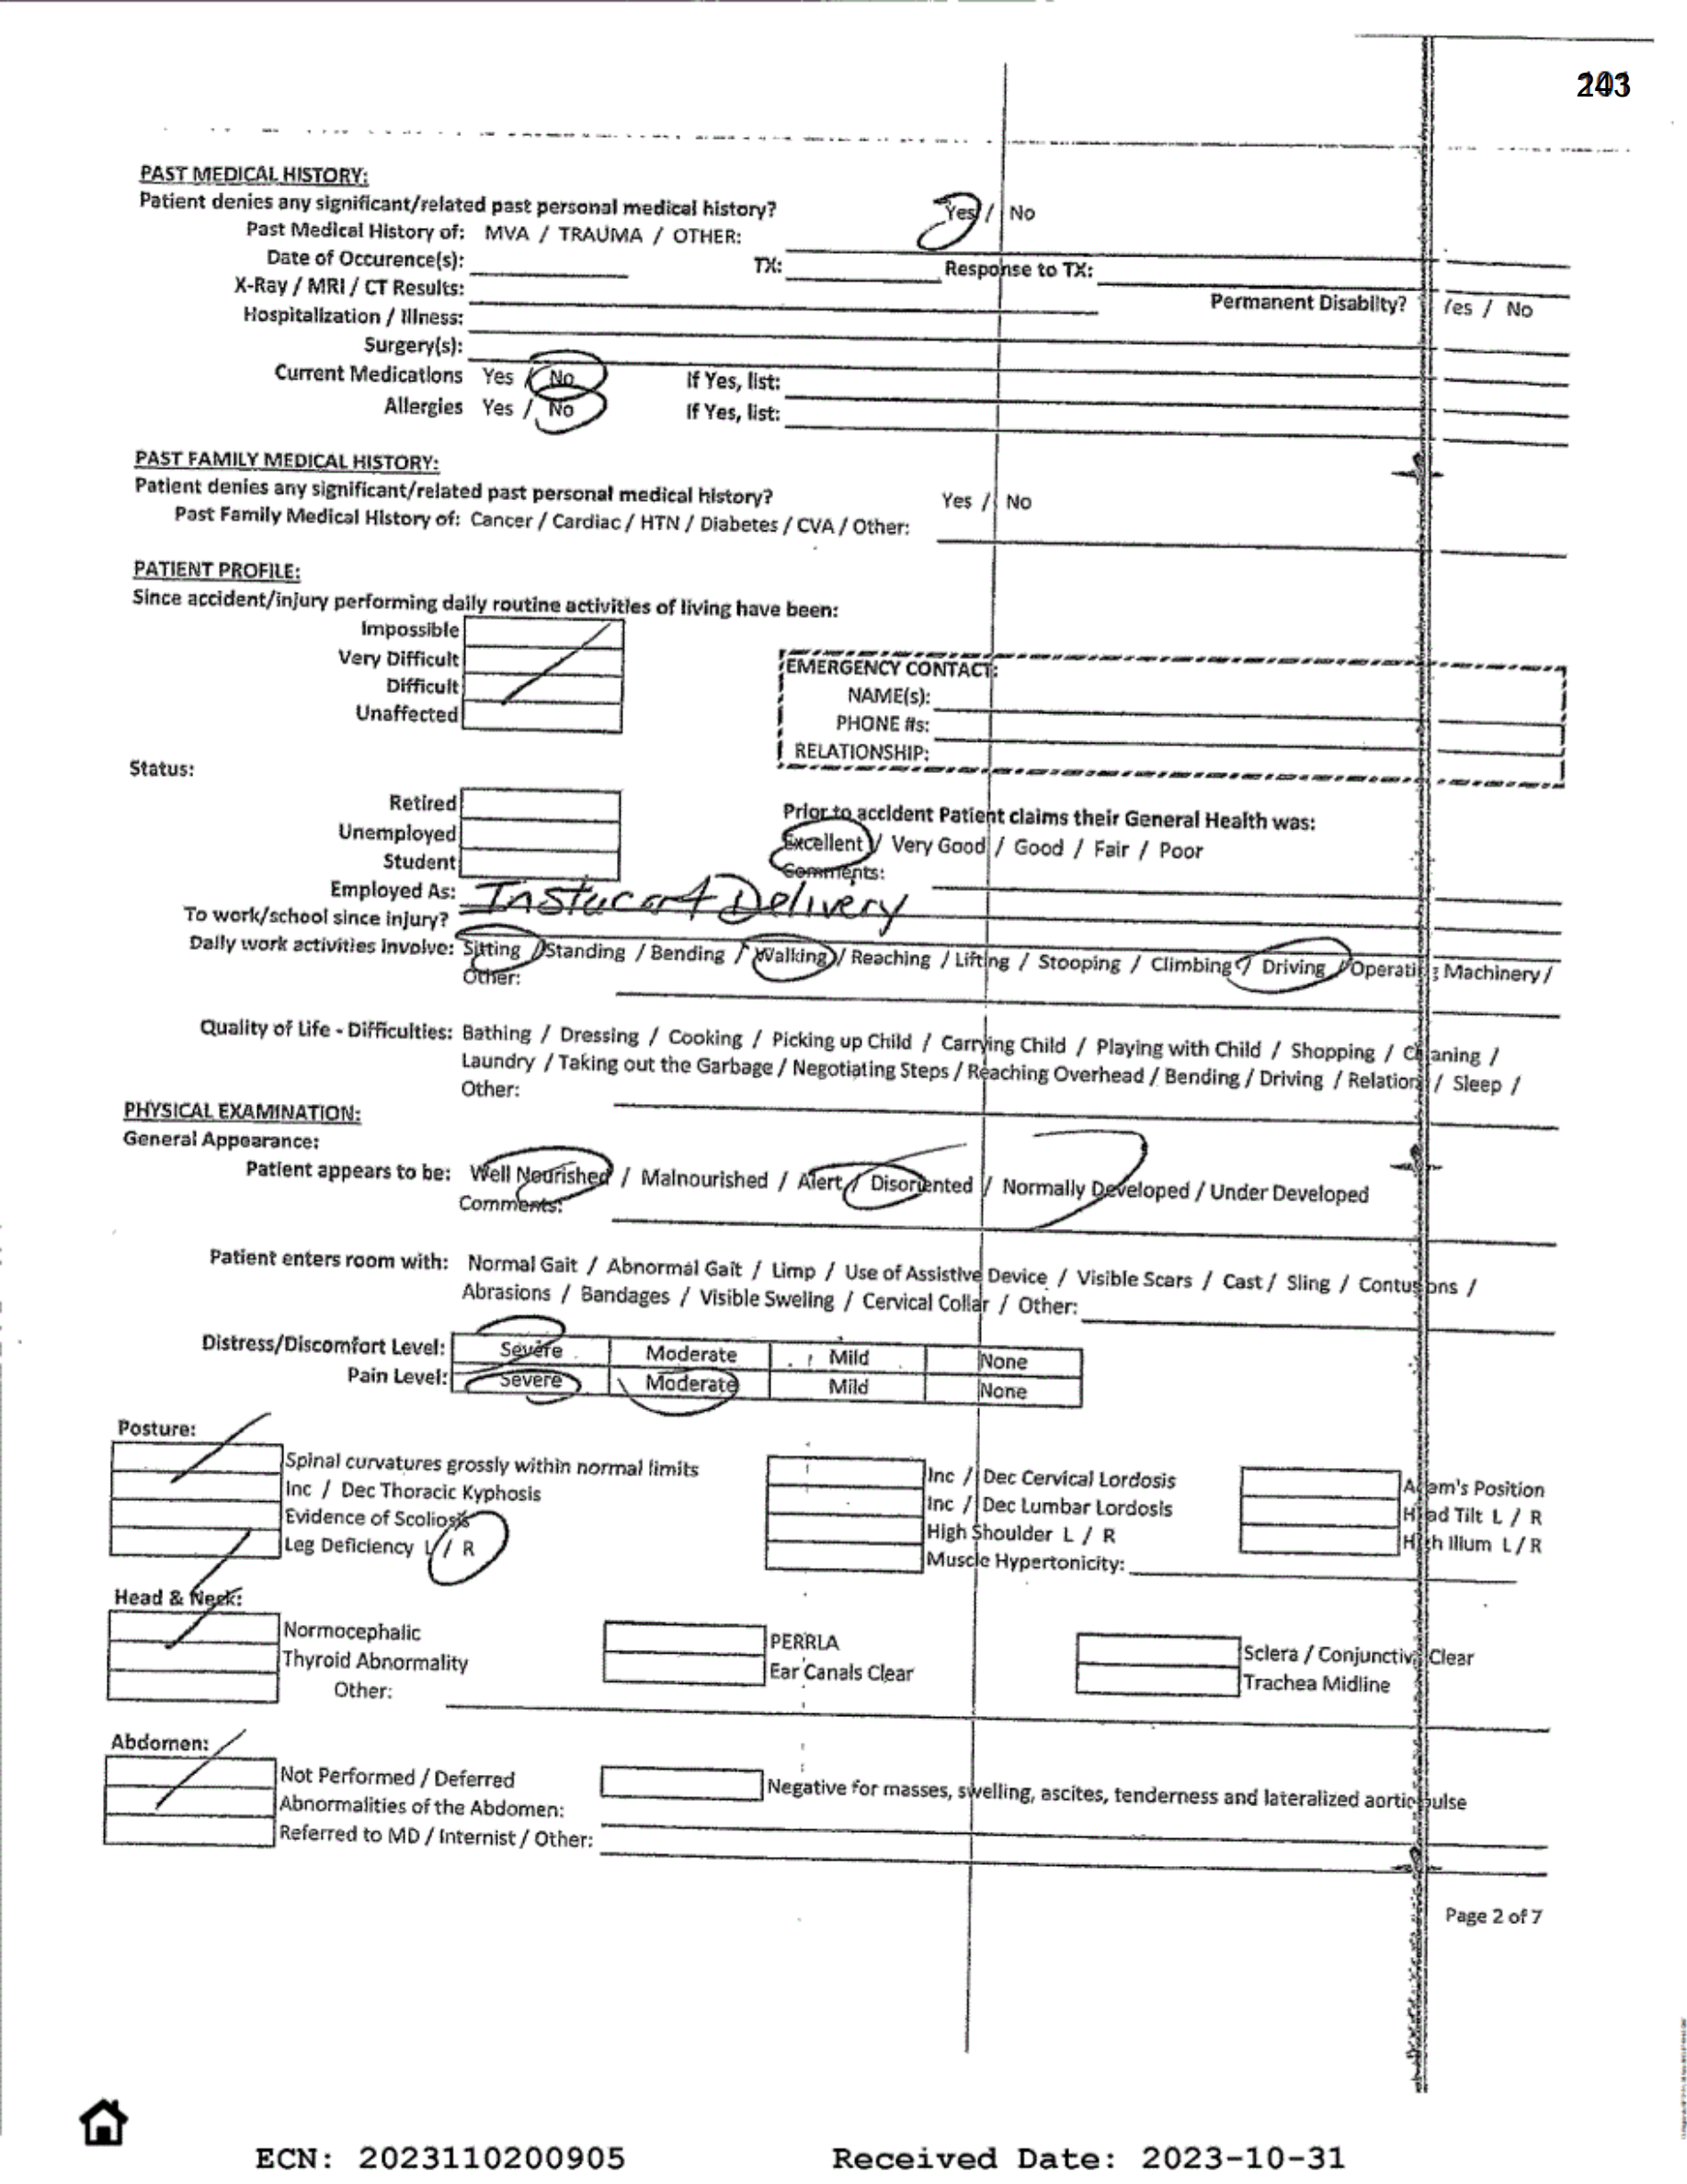 PAST MEDICAL HISTORY:
Patient denies any significant/related past personal medical history? Yes / No
Past Medical History of: MVA / TRAUMA / OTHER:
Date of Occurence(s): TX: Response to TX:
X-Ray / MRI / CT Results: Permanent Disabilty? Yes / No
Hospitalization / Illness:
Surgery(s):
Current Medications Yes / No If Yes, list:
Allergies Yes / No If Yes, list:
PAST FAMILY MEDICAL HISTORY:
Patient denies any significant/related past personal medical history? Yes / No
Past Family Medical History of: Cancer / Cardiac / HTN / Diabetes / CVA / Other:
PATIENT PROFILE:
Since accident/injury performing daily routine activities of living have been:
Impossible
Very Difficult
Difficult
Unaffected
EMERGENCY CONTACT:
NAME(s):
PHONE #s:
RELATIONSHIP:
Status:
Retired
Unemployed
Student
Prior to accident Patient claims their General Health was:
Excellent / Very Good / Good / Fair / Poor
Comments:
Employed As: Instacart Delivery
To work/school since injury?
Daily work activities involve: Sitting / Standing / Bending / Walking / Reaching / Lifting / Stooping / Climbing / Driving / Operating Machinery /
Other:
Quality of Life - Difficulties: Bathing / Dressing / Cooking / Picking up Child / Carrying Child / Playing with Child / Shopping / Cleaning /
Laundry / Taking out the Garbage / Negotiating Steps / Reaching Overhead / Bending / Driving / Relation / Sleep /
Other:
PHYSICAL EXAMINATION:
General Appearance:
Patient appears to be: Well Nourished / Malnourished / Alert / Disoriented / Normally Developed / Under Developed
Comments:
Patient enters room with: Normal Gait / Abnormal Gait / Limp / Use of Assistive Device / Visible Scars / Cast / Sling / Contusions /
Abrasions / Bandages / Visible Sweling / Cervical Collar / Other:
Distress/Discomfort Level: Severe Moderate Mild None
Pain Level: Severe Moderate Mild None
Posture:
Spinal curvatures grossly within normal limits
Inc / Dec Thoracic Kyphosis
Evidence of Scoliosis
Leg Deficiency L / R
Inc / Dec Cervical Lordosis
Inc / Dec Lumbar Lordosis
High Shoulder L / R
Muscle Hypertonicity:
Adam's Position
Head Tilt L / R
High Ilium L / R
Head & Neck:
Normocephalic
Thyroid Abnormality
Other:
PERRLA
Ear Canals Clear
Sclera / Conjunctiva Clear
Trachea Midline
Abdomen:
Not Performed / Deferred
Abnormalities of the Abdomen:
Referred to MD / Internist / Other:
Negative for masses, swelling, ascites, tenderness and lateralized aortic pulse
Page 2 of 7
ECN: 2023110200905 Received Date: 2023-10-31